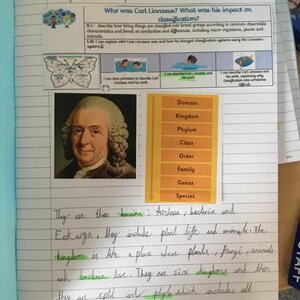 Who was Carl Linnaeus? What was his impact on
classification?
N.C: describe how living things are classified into broad groups according to common observable
characteristics and based on similarities and differences, including micro organisms, plants and
animals.
L.O: I can explain who Carl Linnaeus was and how he changed classification systems using the Linnaean
system.
I can draw a timeline to describe Carl
Linnaeus and his work.
I can describe Carl Linnaeus and
his work.
I can describe Carl Linnaeus and
his work, explaining why
classification was sometimes
difficult.
Domain
Kingdom
Phylum
Class
Order
Family
Genus
Species
They are three domains: Archaea, bacteria and
Eukarya, they include plant life and animals. The
kingdoms is like a place where plants, fungi, animals
and bacteria live. They are six kingdoms and then
they are split into phyla which includes all